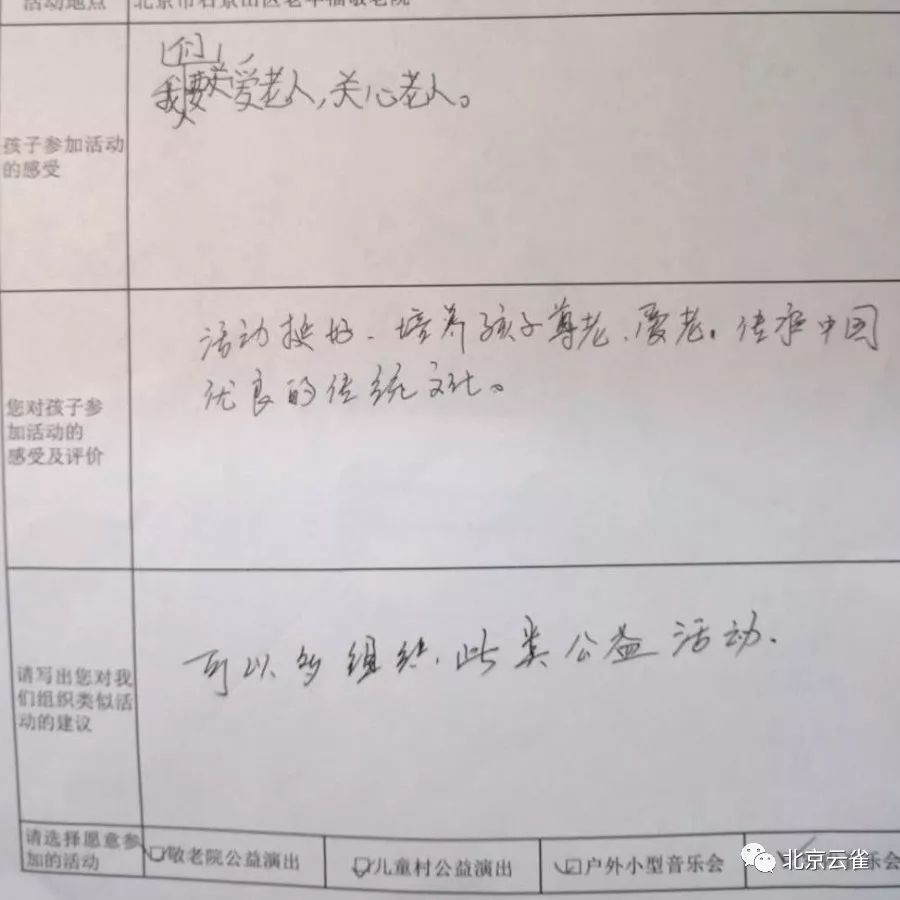 活动地点
北京市石景山区老年福敬老院
孩子参加活动
的感受
们
我要关爱老人,关心老人。
您对孩子参
加活动的
感受及评价
活动挺好、培养孩子尊老、爱老。传承中国
优良的传统文化。
请写出您对我
们组织类似活
动的建议
可以多组织,此类公益活动.
请选择愿意参
加的活动
敬老院公益演出
儿童村公益演出
户外小型音乐会
乐会
北京云雀